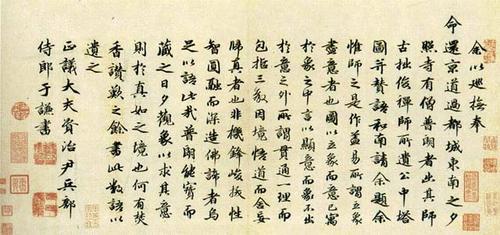 余以巡撫奉
命
還京道過都城東南之夕
照寺有僧普朗者出其師
古拙俊禪師所遺公中塔
圖并贊語和南請余題余
惟師之是作蓋易所謂立象
盡意者也圖以立象而意已寓
於象之中言以顯意而象不出
於意之外所謂貫通一理而
包括三教因境悟道而舍妄
歸真者也非機鋒峻拔性
智圓融而深造佛諦者烏
足以語此哉普朗能寶而
藏之日夕觀象以求其意
則於真如之境也何有焚
香讚歎之餘書此數語以
遺之
正議大夫資治尹兵部
侍郎于謙書